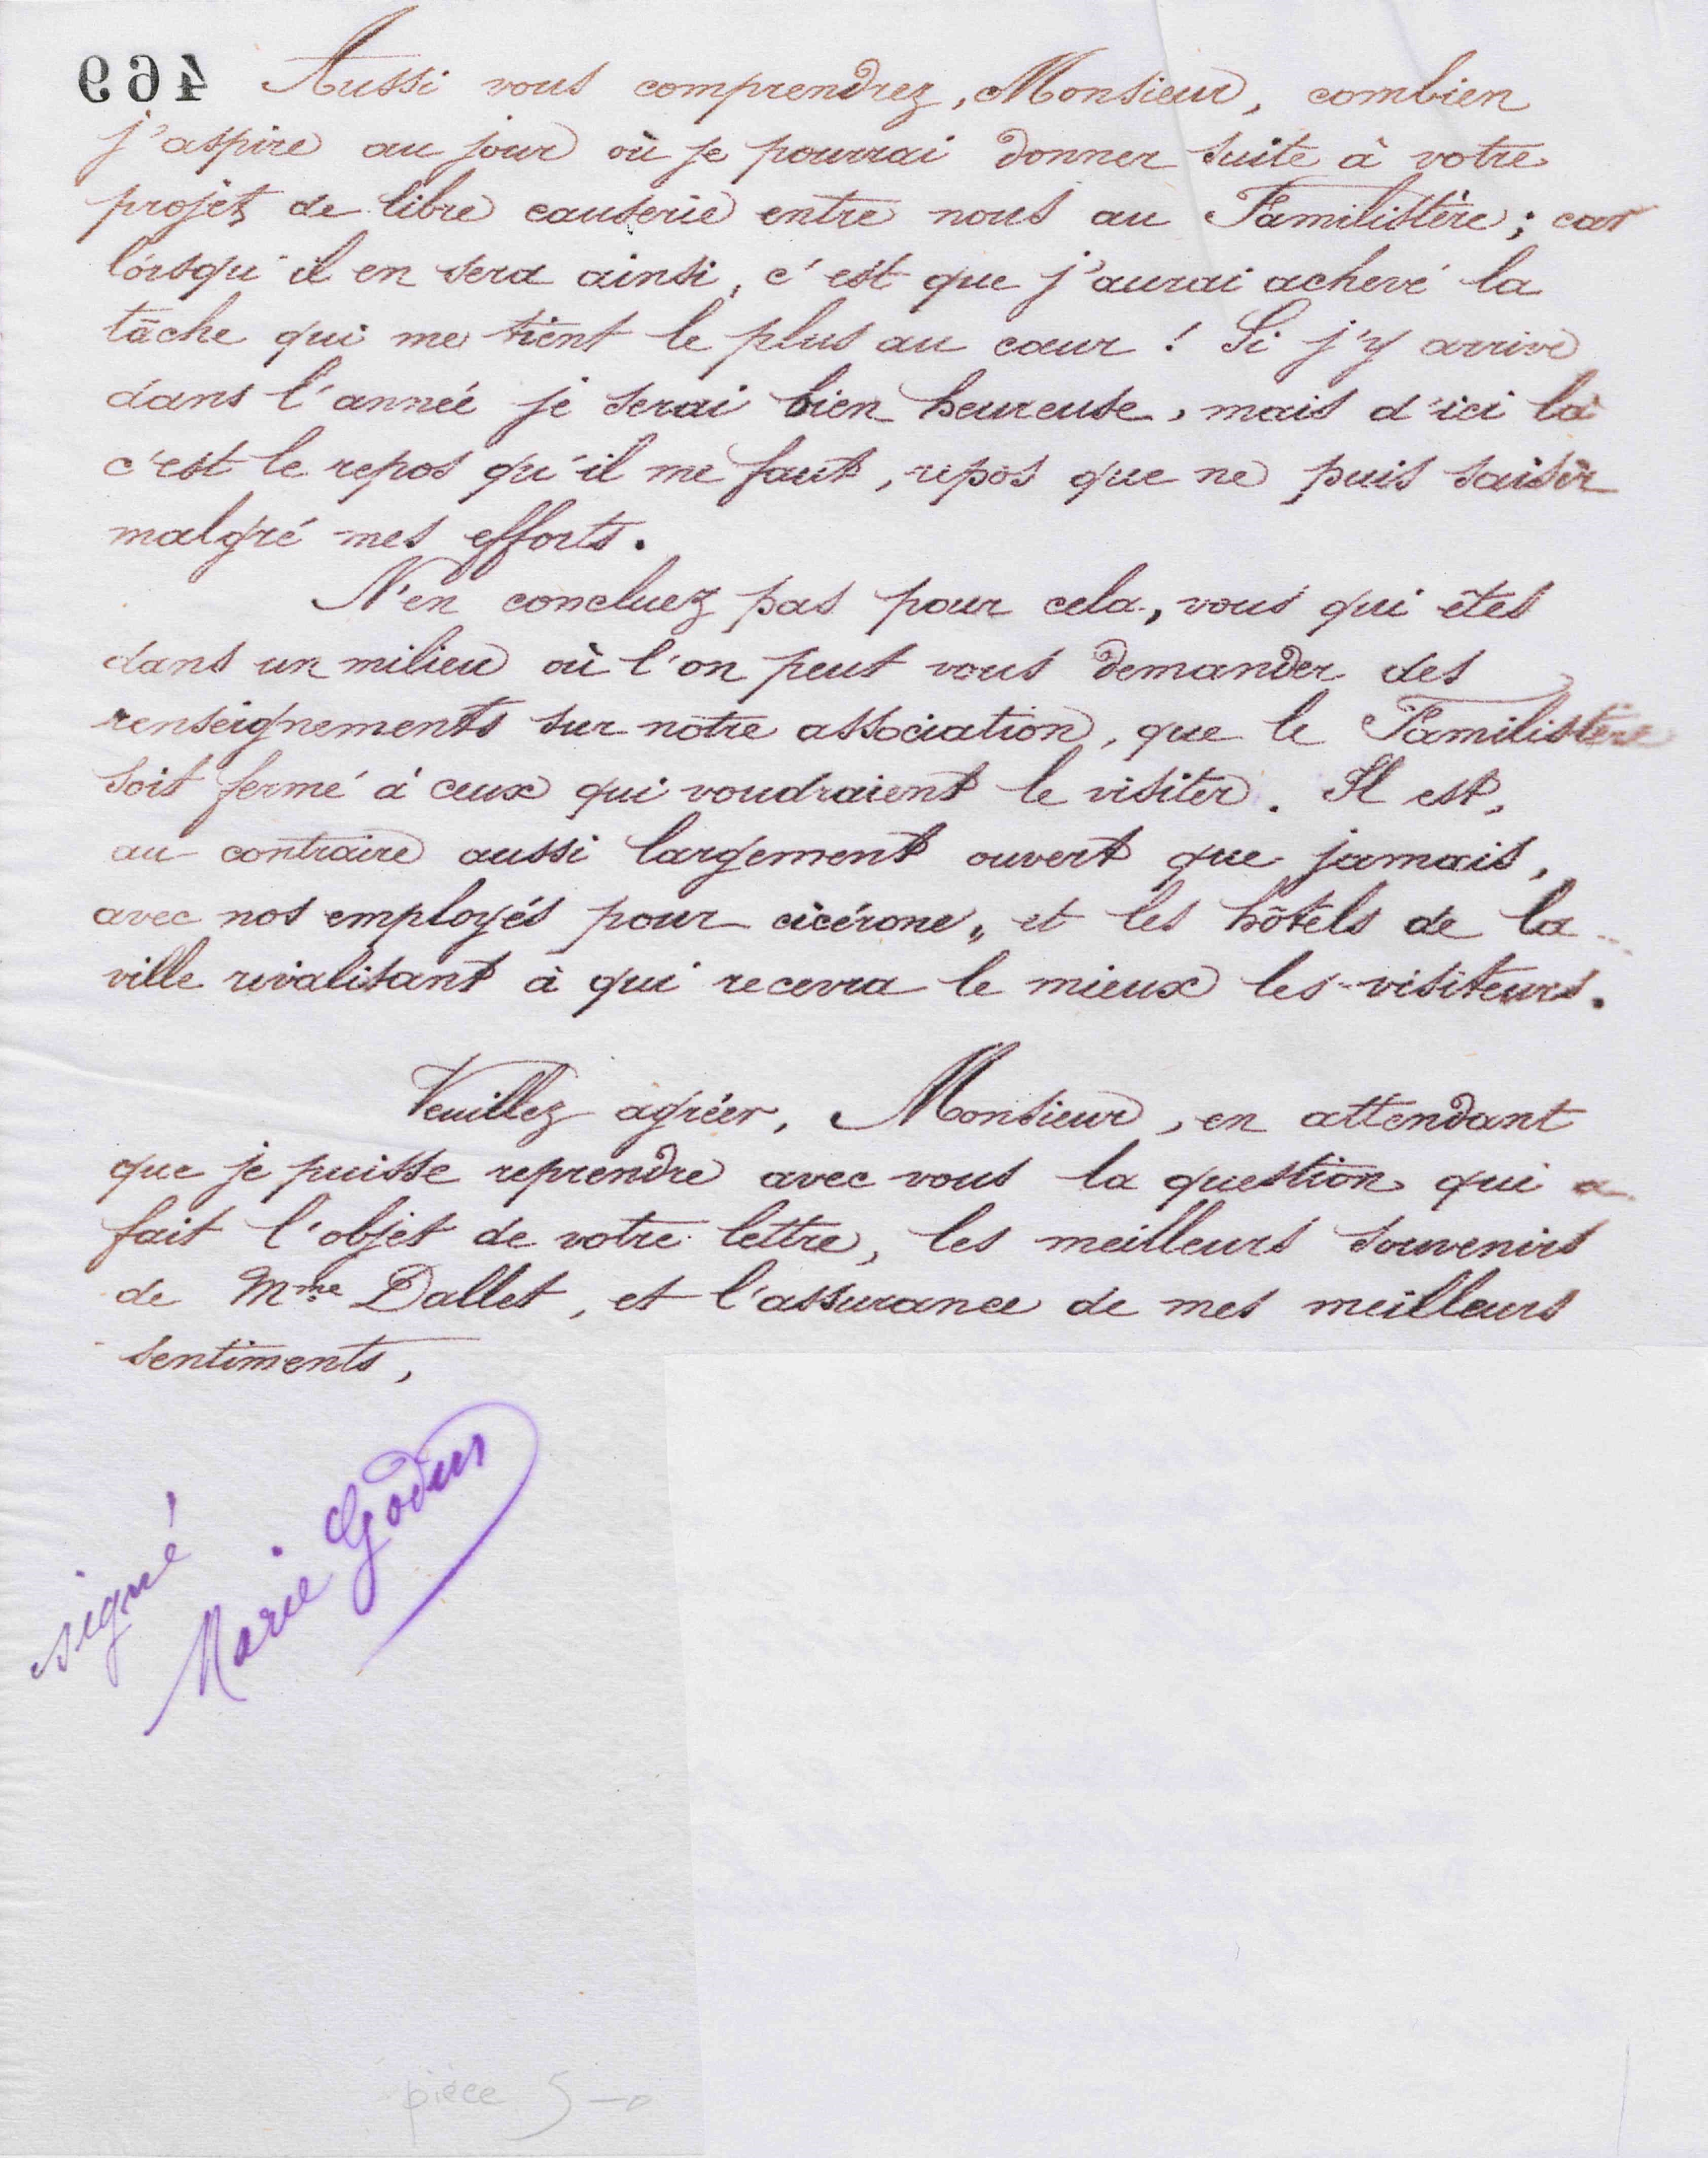 469 Aussi vous comprendrez, Monsieur, combien
j'aspire au jour où je pourrai donner suite à votre
projet de libre causerie entre nous au Familistère ; car
lorsqu'il en sera ainsi, c'est que j'aurai achevé la
tâche qui me tient le plus au cœur ! Si j'y arrive
dans l'année je serai bien heureuse, mais d'ici là
c'est le repos qu'il me faut, repos que ne puis saisir
malgré mes efforts.
N'en concluez pas pour cela, vous qui êtes
dans un milieu où l'on peut vous demander des
renseignements sur notre association, que le Familistère
soit fermé à ceux qui voudraient le visiter. Il est,
au contraire aussi largement ouvert que jamais,
avec nos employés pour cicérone, et les hôtels de la
ville rivalisant à qui recevra le mieux les visiteurs.
Veuillez agréer, Monsieur, en attendant
que je puisse reprendre avec vous la question qui a
fait l'objet de votre lettre, les meilleurs souvenirs
de Mme Dallet, et l'assurance de mes meilleurs
sentiments,
signé
Marie Godin
pièce 5